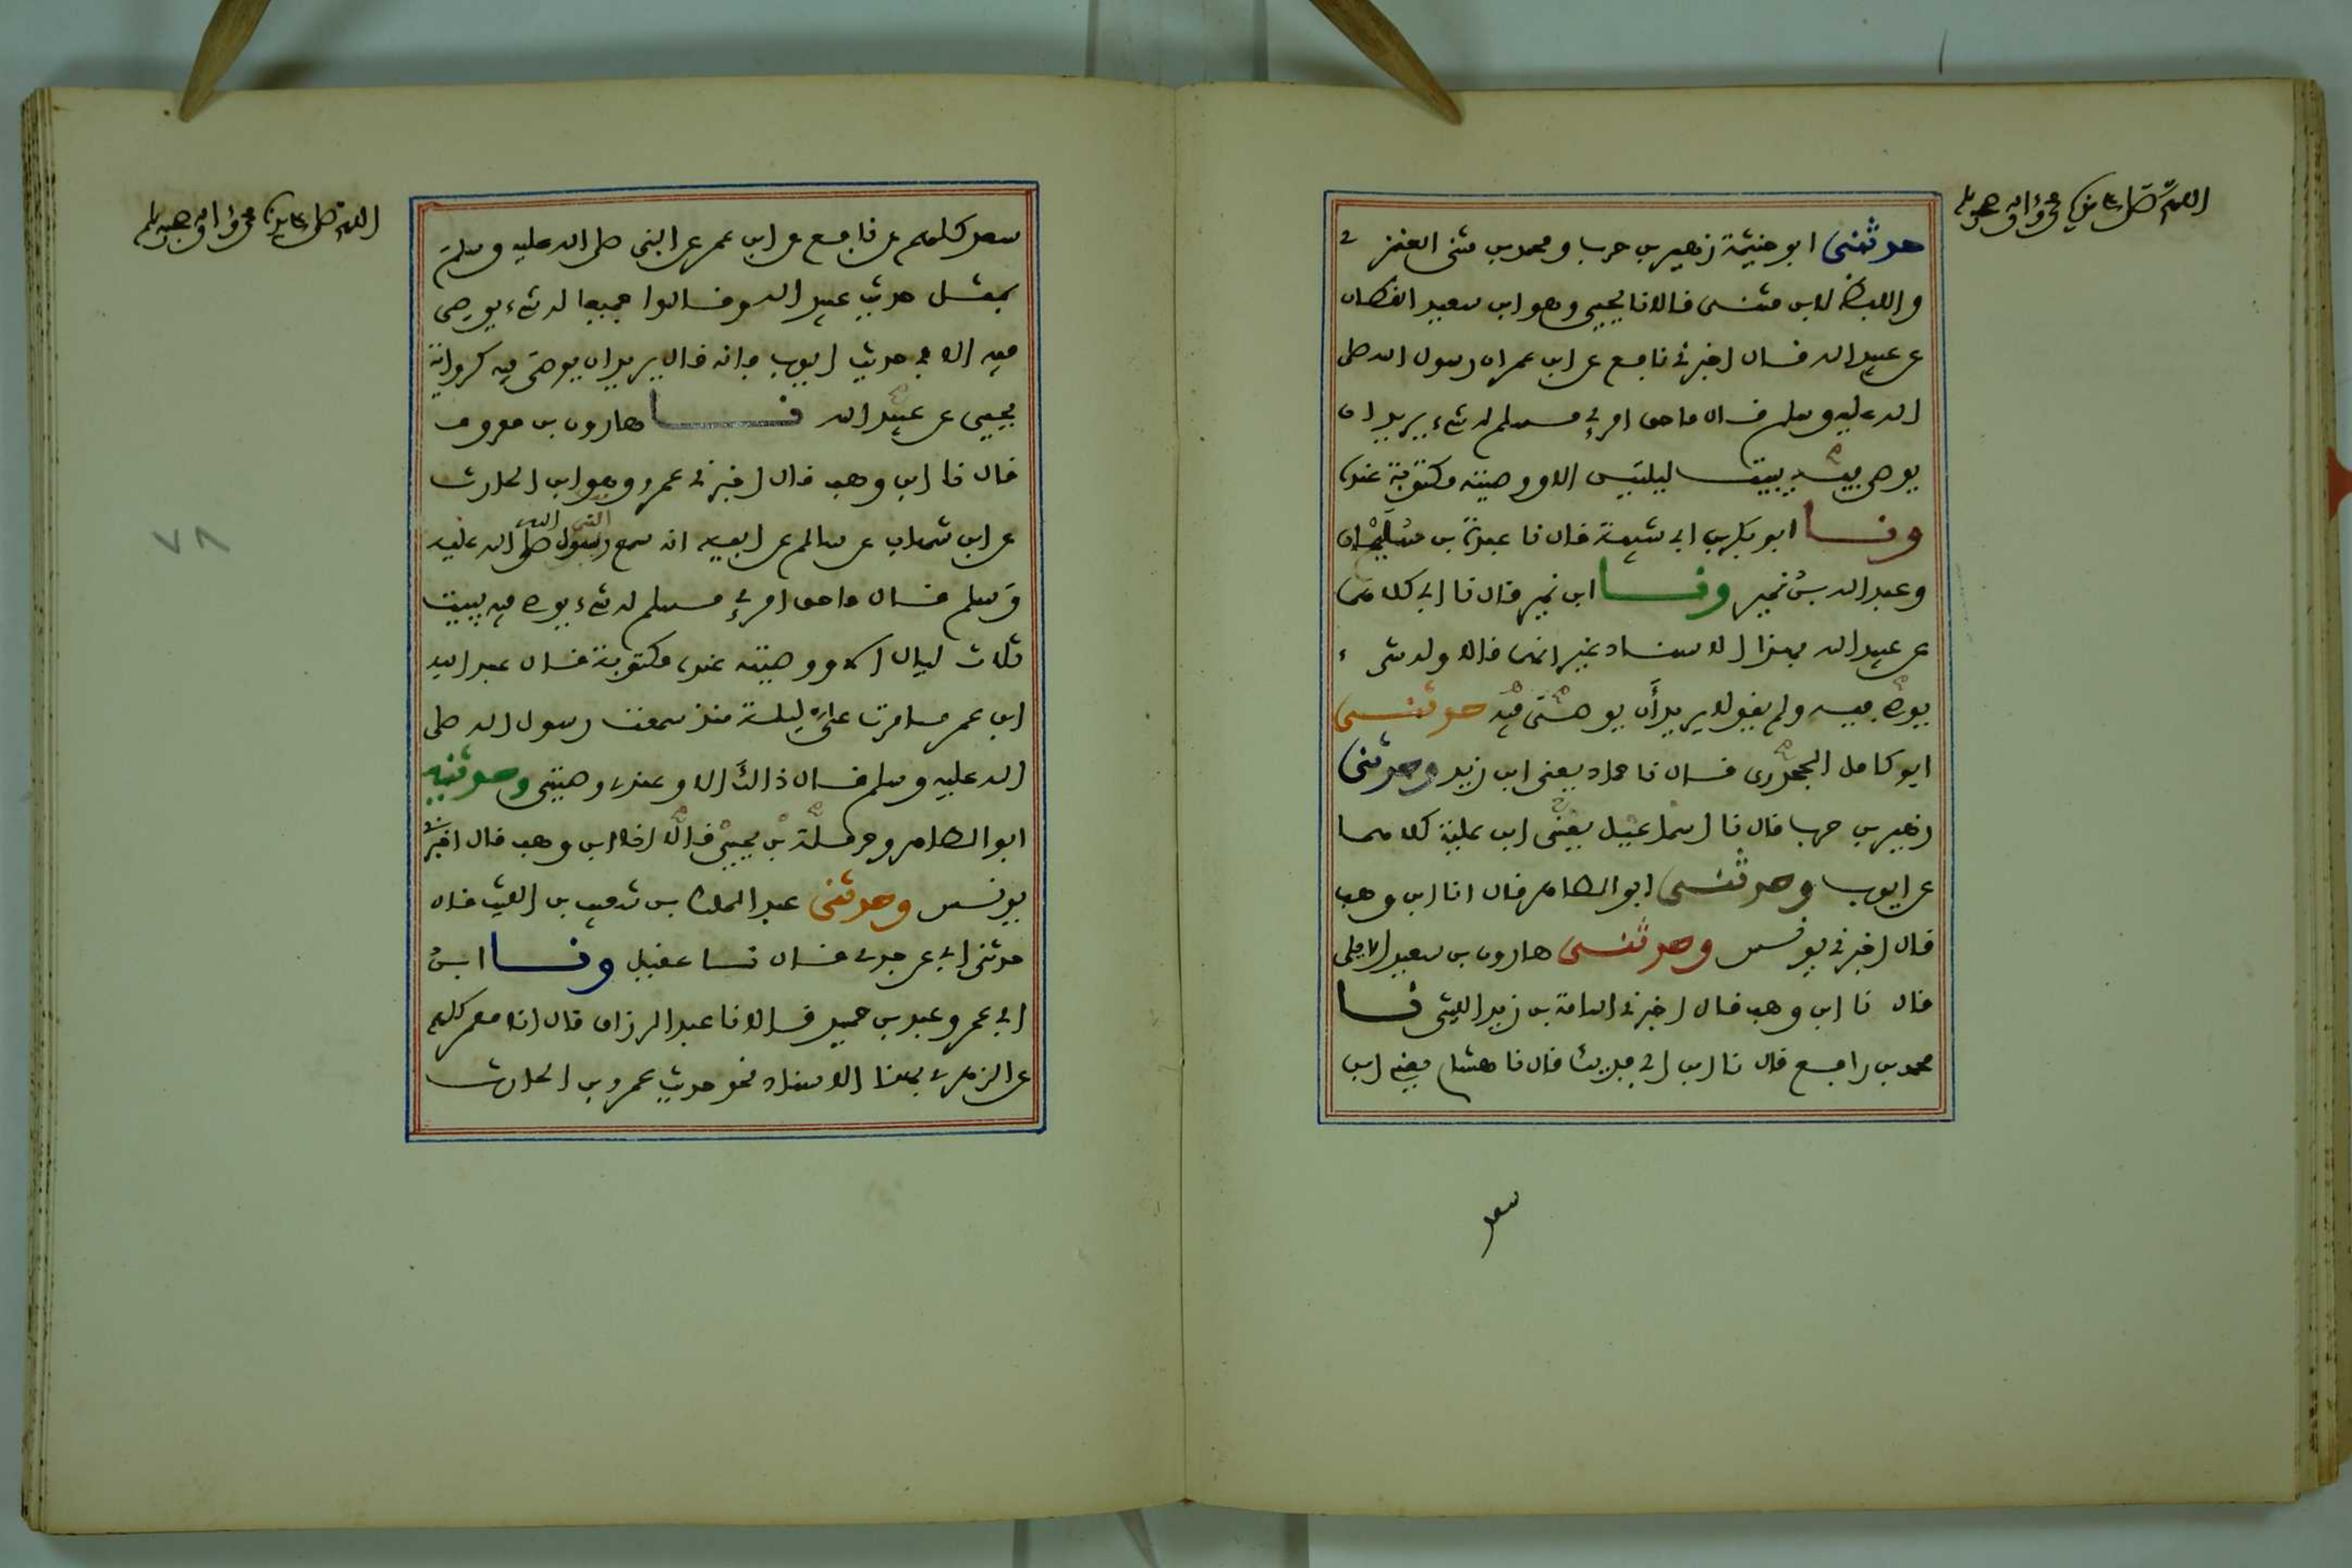 اللهم صل على سيدنا محمد وآله وصحبه وسلم
حدثني ابو خيثمة زهير بن حرب ومحمد بن مثنى العنزي
واللفظ لابن مثنى قالا نا يحيى وهو ابن سعيد القطان
عن عبيد الله قال اخبرني نافع عن ابن عمر ان رسول الله صلى
الله عليه وسلم قال ما حق امرئ مسلم له شيء يريد ان
يوصي فيه يبيت ليلتين الا ووصيته مكتوبة عنده
ونا ابو بكر بن ابي شيبة قال نا عبدة بن سليمان
وعبد الله بن نمير ونا ابن نمير قال نا ابي كلاهما
عن عبيد الله بهذا الاسناد غير انهما قالا وله شيء
يوصي فيه ولم يقولا يريد أن يوصي فيه حدثني
ابو كامل الجحدري قال نا حماد يعني ابن زيد وحدثني
زهير بن حرب قال نا اسماعيل يعني ابن علية كلاهما
عن ايوب وحدثني ابو الطاهر قال انا ابن وهب
قال اخبرني يونس وحدثني هارون بن سعيد الايلي
قال نا ابن وهب قال اخبرني اسامة بن زيد الليثي نا
محمد بن رافع قال نا ابن ابي فديك قال نا هشام يعني ابن
سعد
اللهم صل على سيدنا محمد وآله وصحبه وسلم
سعد كلهم عن نافع عن ابن عمر عن النبي صلى الله عليه وسلم
بمثل حديث عبيد الله وقالوا جميعا له شيء يوصي
فيه الا في حديث ايوب فانه قال يريد ان يوصي فيه كرواية
يحيى عن عبيد الله نا هارون بن معروف
قال نا ابن وهب قال اخبرني عمرو وهو ابن الحارث
عن ابن شهاب عن سالم عن ابيه انه سمع رسول الله صلى الله عليه
وسلم قال ما حق امرئ مسلم له شيء يوصي فيه يبيت
ثلاث ليال الا ووصيته عنده مكتوبة قال عبد الله
ابن عمر ما مرت علي ليلة منذ سمعت رسول الله صلى
الله عليه وسلم قال ذالك الا وعندي وصيتي وحدثنيه
ابو الطاهر وحرملة بن يحيى قالا انا ابن وهب قال اخبرني
يونس وحدثني عبد الملك بن شعيب بن الليث قال
حدثني ابي عن جدي قال نا عقيل ونا ابن
ابي عمر وعبد بن حميد قالا نا عبد الرزاق قال انا معمر كلهم
عن الزهري بهذا الاسناد نحو حديث عمرو بن الحارث
٧٨